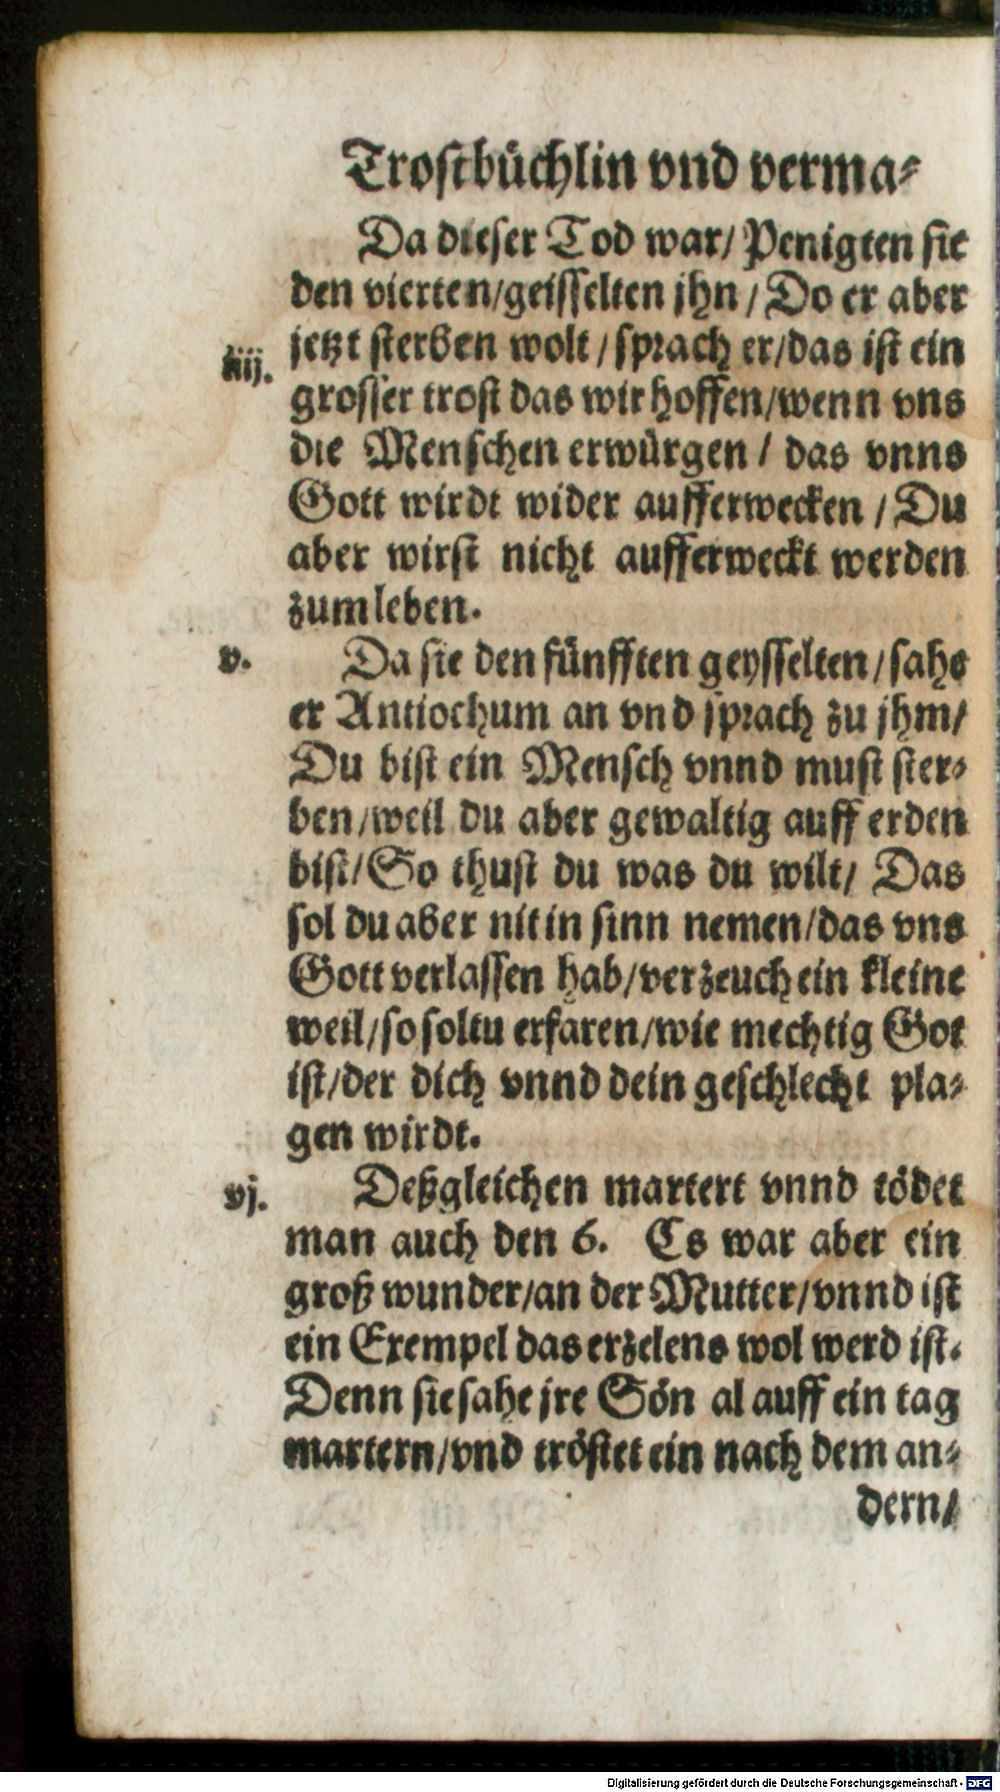 Troſtbüchlin vnd verma⸗
Da dieſer Tod war/ Penigten ſie
den vierten/geiſſelten jhn / Do er aber
iiij.
jetzt ſterben wolt / ſprach er/das iſt ein
groſſer troſt das wir hoffen/wenn vns
die Menſchen erwürgen / das vnns
Gott wirdt wider aufferwecken / Du
aber wirſt nicht aufferweckt werden
zum leben.
v.
Da ſie den fünfften geyſſelten / ſahe
er Antiochum an vnd ſprach zu jhm/
Du biſt ein Menſch vnnd muſt ſter⸗
ben/weil du aber gewaltig auff erden
biſt/ So thuſt du was du wilt/ Das
ſol du aber nit in ſinn nemen/das vns
Gott verlaſſen hab/verzeuch ein kleine
weil/ſo ſoltu erfaren/wie mechtig Got
iſt/der dich vnnd dein geſchlecht pla⸗
gen wirdt.
vj.
Deßgleichen martert vnnd tödet
man auch den 6. Es war aber ein
groß wunder/an der Mutter/vnnd iſt
ein Exempel das erzelens wol werd iſt.
Denn ſie ſahe jre Sön al auff ein tag
martern/vnd tröſtet ein nach dem an⸗
dern/
Digitalisierung gefördert durch die Deutsche Forschungsgemeinschaft - DFG